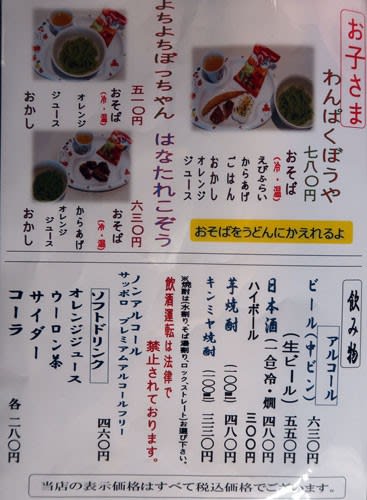 お子さま
わんぱくぼうや
七八〇円
おそば
(冷・温)
えびふらい
からあげ
ごはん
オレンジ
ジュース
おかし
よちよちぼっちゃん
五一〇円
おそば
(冷・温)
オレンジ
ジュース
おかし
はなたれこぞう
六三〇円
おそば
(冷・温)
からあげ
オレンジ
ジュース
おかし
おそばをうどんにかえれるよ
飲み物
アルコール
ビール(中ビン) 六三〇円
(生ビール) 五五〇円
日本酒(一合冷・燗) 四八〇円
ハイボール 三〇〇円
芋焼酎 (一〇〇㎖) 四八〇円
キンミヤ焼酎 (一〇〇㎖) 三三〇円
※焼酎は水割り、そば湯割り、ロック、ストレートとお選び下さい。
飲酒運転は法律で
禁止されております。
ノンアルコール
サッポロ プレミアムアルコールフリー 四六〇円
ソフトドリンク
オレンジジュース
ウーロン茶
サイダー
コーラ 各二八〇円
当店の表示価格はすべて税込価格でございます。